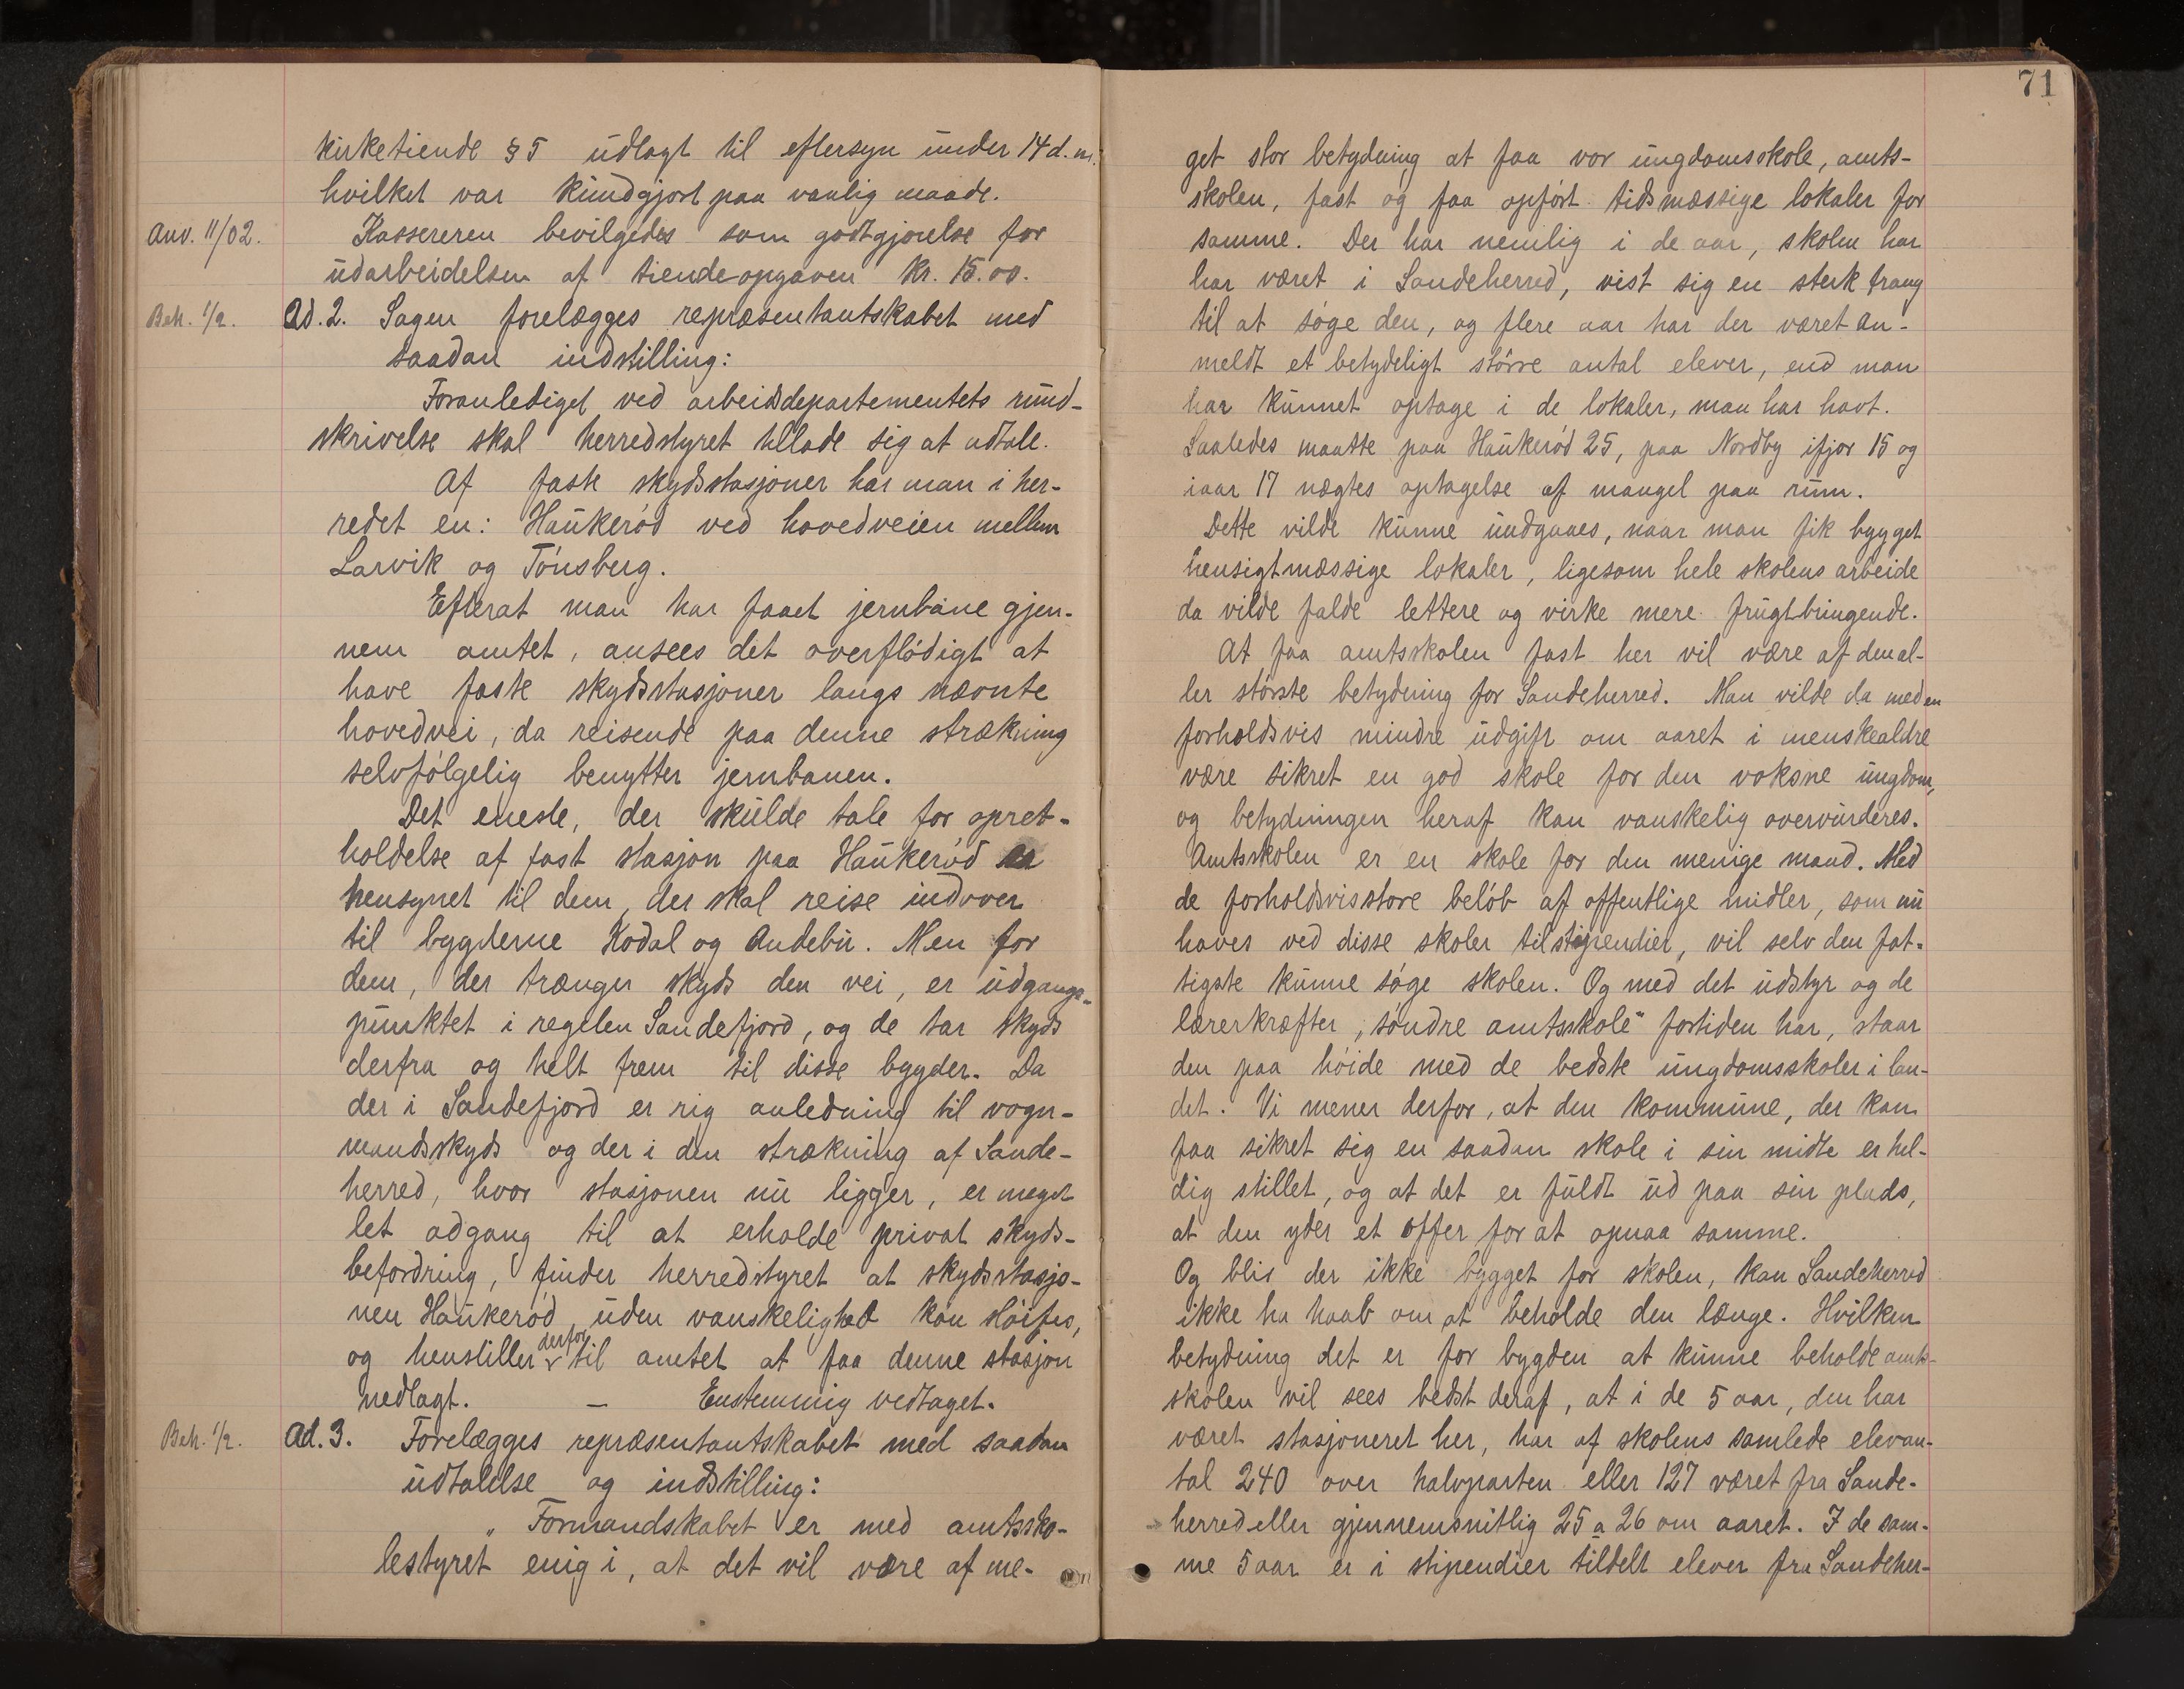 kirketiende § 5 udlagt til eftersyn under 14 d. m.
hvilket var kundgjort paa vanlig maade.
Anv. 11/02. Kassereren bevilgedes som godtgjørelse for
udarbeidelsen af tiendeopgaven kr. 15.00.
Beh. 1/2. Ad. 2. Sagen forelægges repræsentantskabet med
saadan indstilling:
Foranlediget ved arbeidsdepartementets rund-
skrivelse skal herredstyret tillade sig at udtale.
Af faste skydsstasjoner har man i her-
redet en: Haukerød ved hovedveien mellem
Larvik og Tønsberg.
Efterat man har faaet jernbane gjen-
nem amtet, ansees det overflødigt at
have faste skydsstasjoner langs nævnte
hovedvei, da reisende paa denne strækning
selvfølgelig benytter jernbanen.
Det eneste, der skulde tale for opret-
holdelse af fast stasjon paa Haukerød er
hensynet til dem, der skal reise indover
til bygderne Kodal og Andebu. Men for
dem, der trænger skyds den vei, er udgangs-
punktet i regelen Sandefjord, og de tar skyds
derfra og helt frem til disse bygder. Da
der i Sandefjord er rig anledning til vogn-
mandsskyds og der i den strækning af Sande-
herred, hvor stasjonen nu ligger, er meget
let adgang til at erholde privat skyds-
befordring, finder herredstyret at skydsstasjo-
nen Haukerød uden vanskelighed kan sløifes,
og henstiller derfor til amtet at faa denne stasjon
nedlagt. – Enstemmig vedtaget.
Beh. 1/2. Ad. 3. Forelægges repræsentantskabet med saadan
udtalelse og indstilling:
„Formandskabet er med amtssko-
lestyret enig i, at det vil være af me-
71
get stor betydning at faa vor ungdomsskole, amts-
skolen, fast og faa opført tidsmæssige lokaler for
samme. Der har nemlig i de aar, skolen har
har været i Sandeherred, vist sig en sterk trang
til at søge den, og flere aar har der været an-
meldt et betydeligt større antal elever, end man
har kunnet optage i de lokaler, man har havt.
Saaledes maatte paa Haukerød 25, paa Nordby ifjor 15 og
iaar 17 nægtes optagelse af mangel paa rum.
Dette vilde kunne undgaaes, naar man fik bygget
hensigtmæssige lokaler, ligesom hele skolens arbeide
da vilde falde lettere og virke mere frugtbringende.
At faa amtsskolen fast her vil være af den al-
ler største betydning for Sandeherred. Man vilde da med en
forholdsvis mindre udgift om aaret i menskealdre
være sikret en god skole for den voksne ungdom,
og betydningen heraf kan vanskelig overvurderes.
Amtsskolen er en skole for den menige mand. Med
de forholdsvis store beløb af offentlige midler, som nu
haves ved disse skoler til stipendier, vil selv den fat-
tigste kunne søge skolen. Og med det udstyr og de
lærerkræfter „søndre amtsskole“ fortiden har, staar
den paa høide med de bedste ungdomsskoler i lan-
det. Vi mener derfor, at den kommune, der kan
faa sikret sig en saadan skole i sin midte er hel-
dig stillet, og at det er fuldt ud paa sin plads,
at den yder et offer for at opnaa samme.
Og blir der ikke bygget for skolen, kan Sandeherred
ikke ha haab om at beholde den længe. Hvilken
betydning det er for bygden at kunne beholde amts-
skolen vil sees bedst deraf, at i de 5 aar, den har
været stasjoneret her, har af skolens samlede elevan-
tal 240 over halvparten eller 127 været fra Sande-
herred eller gjennemsnitlig 25 a 26 om aaret. I de sam-
me 5 aar er i stipendier tildelt elever fra Sandeher-